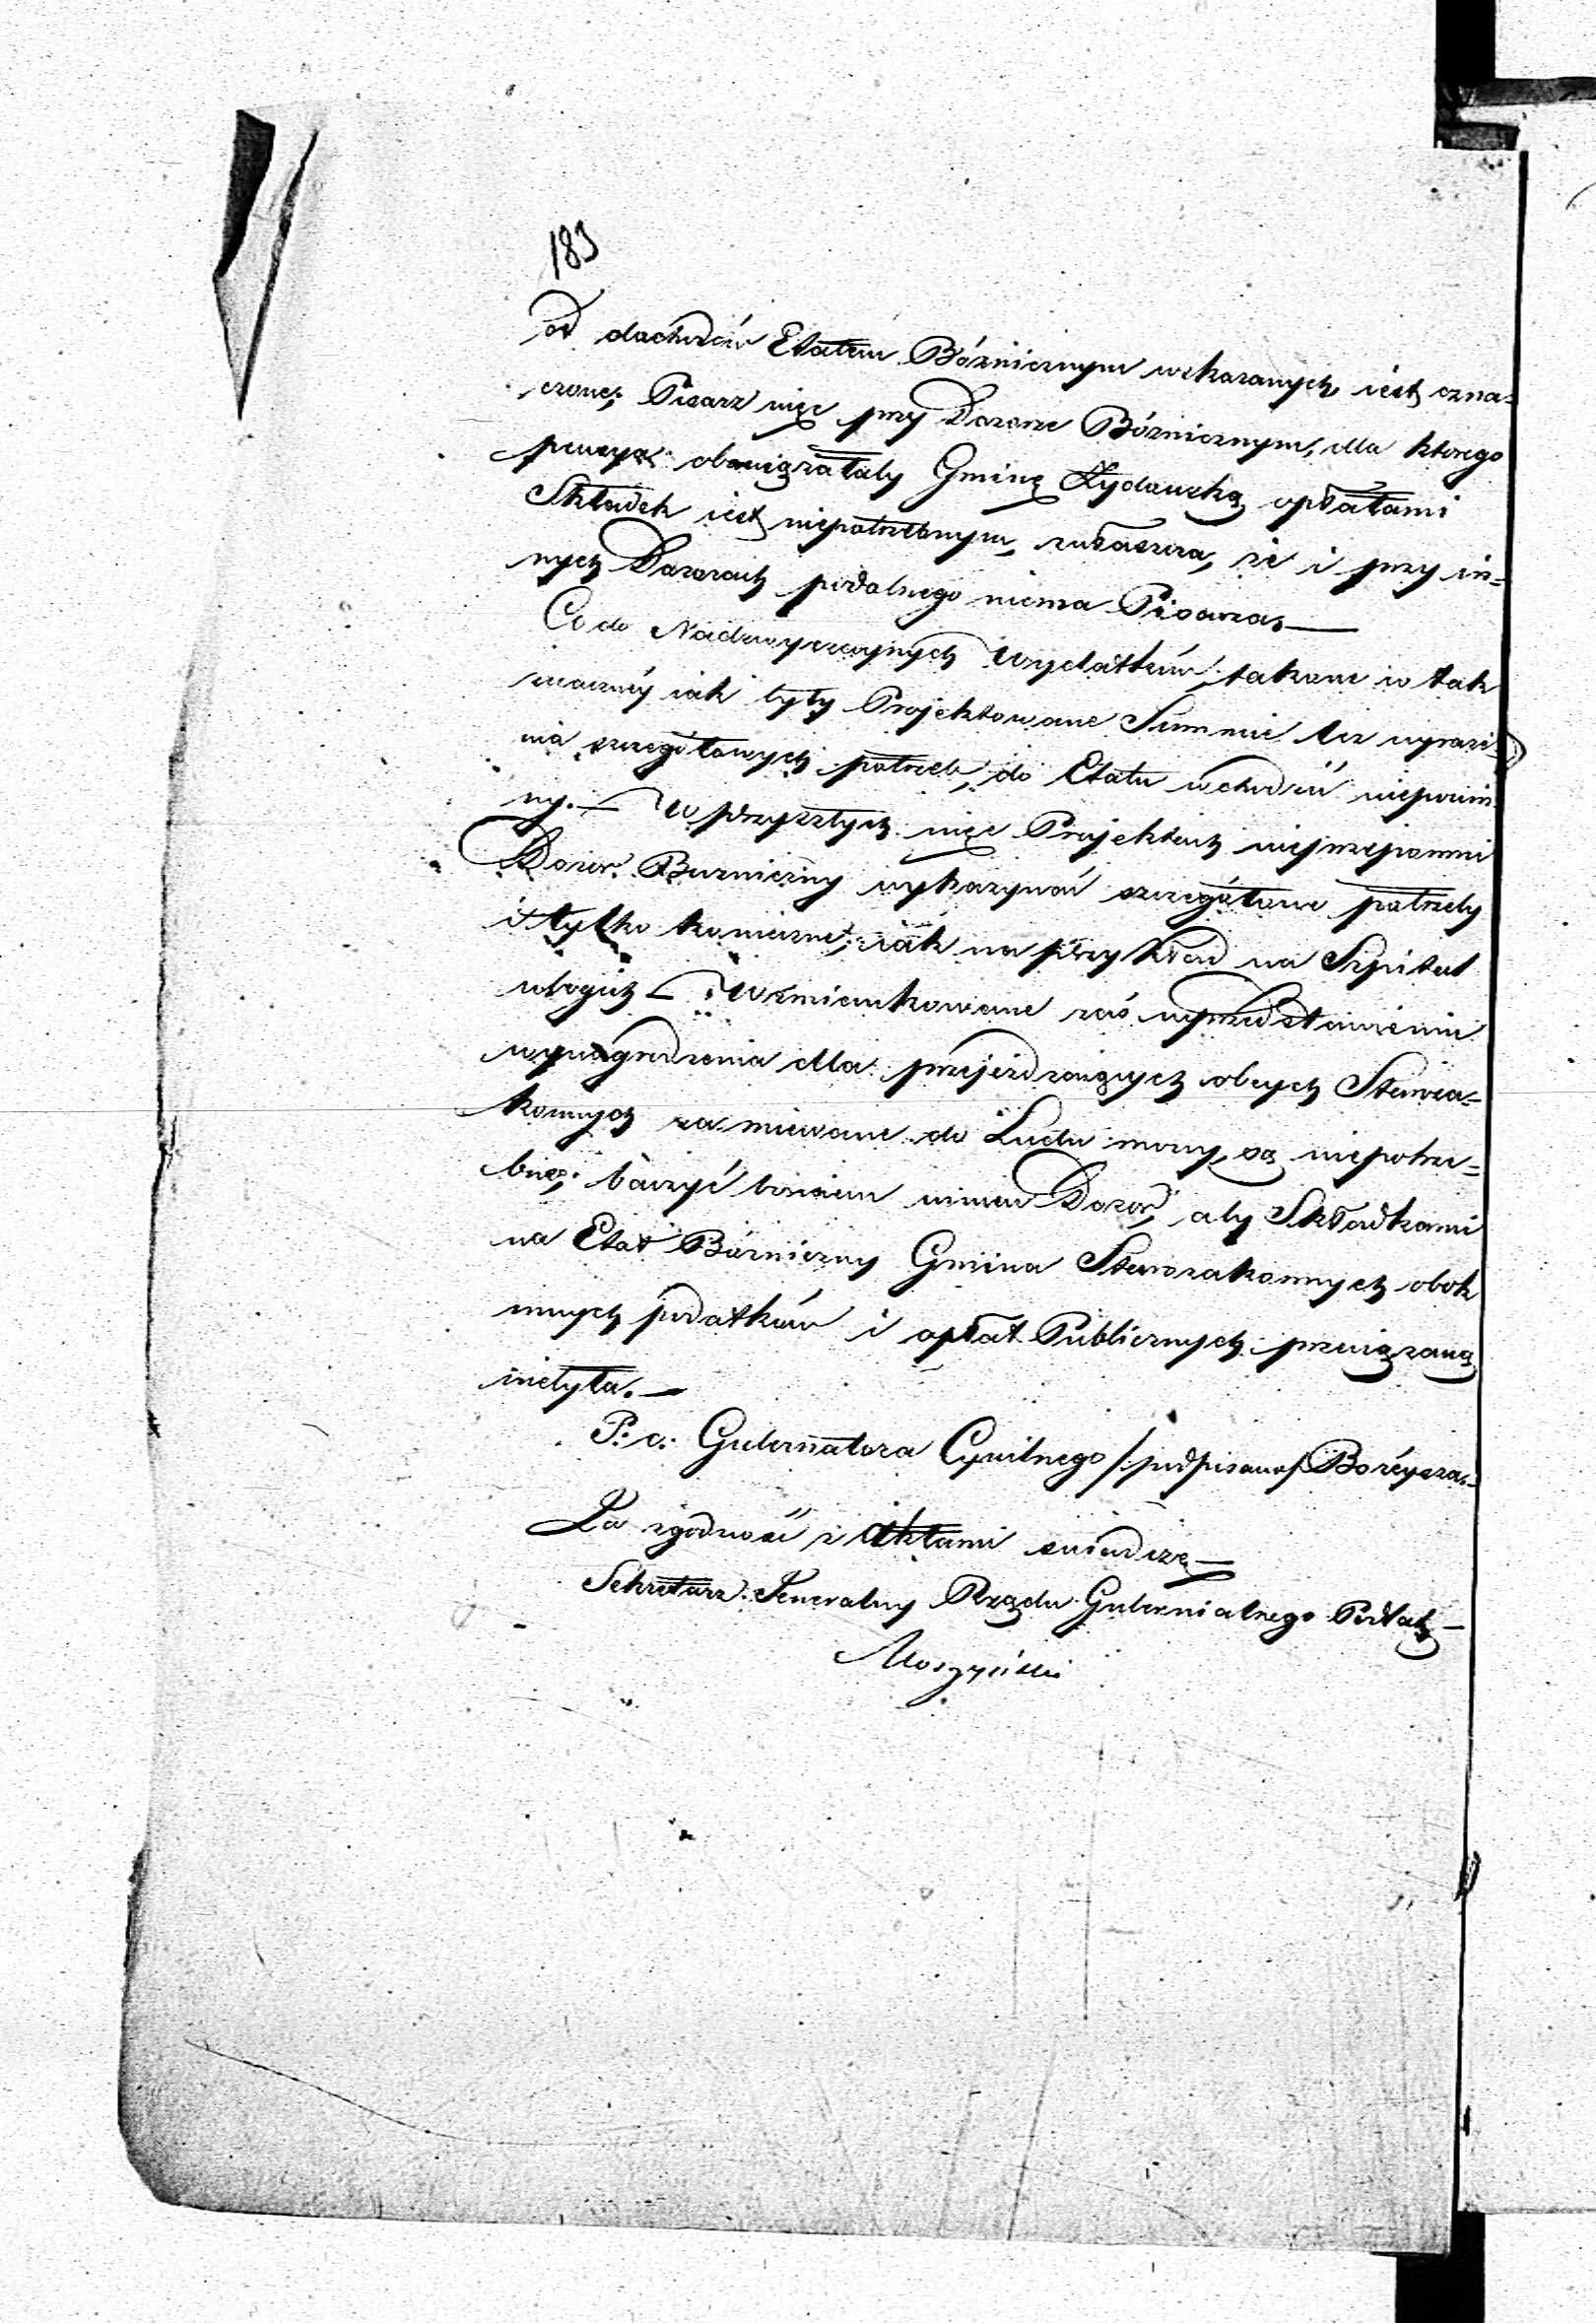 183
od dochodów Etatem Bóżnicznym wskazanych iest ozna=
czone; Pisarz więc przy Dozorze Bóżnicznym, dla ktorego
pensya obowiązałaby Gminę Żydowską opłatami
Składek iest niepotrzebnym, zwłaszcza, że i przy in=
nych Dozorach podobnego niema Pisarza.—
Co do Nadzwyczaynych Wydatków, takowe w tak
znaczney iak były Projektowane Summie bez wyraże=
nia szczegółowych potrzeb, do Etatu wchodzić niepowin
ny.— W przyszłych więc Projektach nieprzepomni
Dozor Bużniczny wykazywać szczegółowe potrzeby
i tylko konieczne, iak na przykład na Szpital
ubogich — Wzmiankowane zaś w przedstawieniu
wynagrodzenia dla przejeżdzaiących obcych Staroza=
konnych za miewane do Ludu mowy, są niepotrze=
bne; baczyć bowiem winien Dozor, aby Składkami
na Etat Bóżniczny Gmina Starozakonnych obok
innych podatków i opłat Publicznych przeciążoną
niebyła.—
P. o. Gubernatora Cywilnego /:podpisano/ Boreysza.
Za zgodność z Aktami świadczę—
Sekretarz Jeneralny Rządu Gubernialnego Podlas.—
Moszyński